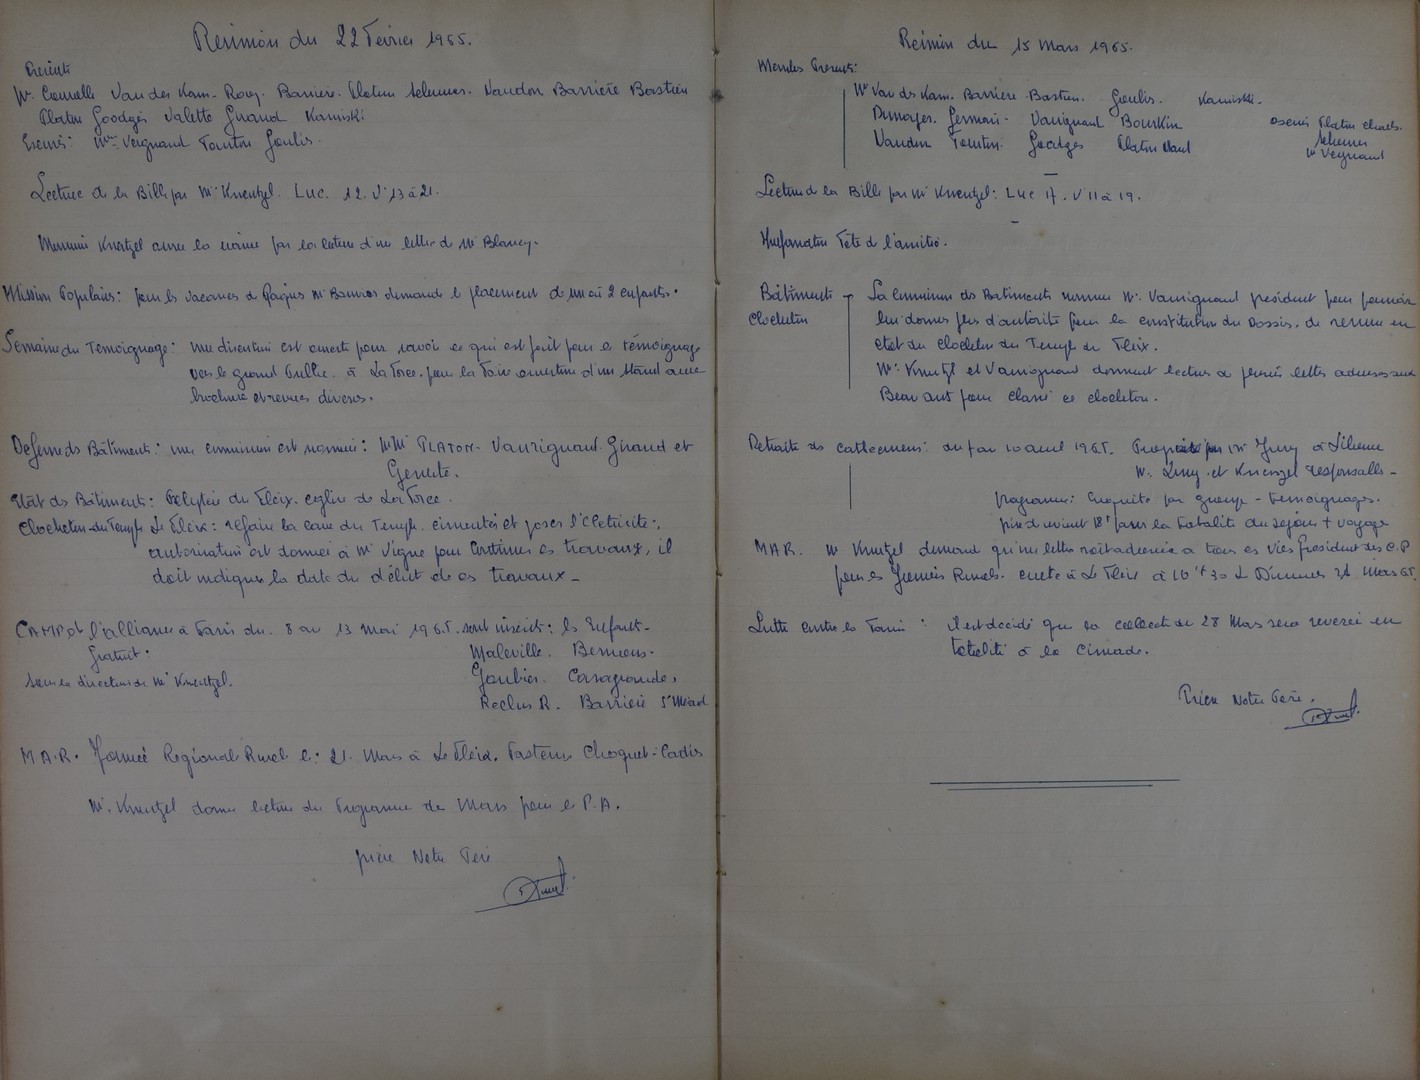 Réunion du 22 Février 1965.
Présents
Mr. Van der Kam. Roug. Barrière. Platon Valette Giraud Kaminski
Excusés: Mme Veignand Tonton Goulis.
Lecture de la Bible par Mr Kneutzel. Luc. 12. V. 13 à 21.
Monsieur Kneutzel la par la lecture d'une lettre de Mr Blancy.
Mission Populaire: pour les vacances de Pâques Mr demande le placement de un ou 2 enfants.
Semaine du Temoignage: une discution est ouverte pour savoir ce qui est fait pour le témoignage
vers le grand Public. à La Force. pour la Foire ouverture d'un Stand avec
brochure et revues diverses.
Défense des Bâtiments: une commission est nommée: MM PLATON. Vaurignaud. Giraud et
Geneste.
Etat des Bâtiments: Presbytère du Fleix. église de La Force.
Clocheton du Temple Le Fleix: refaire la cave du Temple. cimenter et poser l'électricité.
autorisation est donnée à Mr Vigne pour continuer ces travaux, il
doit indiquer la date du début de ces travaux_
CAMP de l'alliance à Paris du. 8 au 13 mai 1965. sont inscrits: les Enfants-
Gratuit.
Maleville. Berneous.
sous la direction de Mr Kneutzel.
Goubier. Casagrande.
Reclus R. Barrière St Méard
M.A.R. Journée Régional Rural le: 21. Mars à Le Fleix. Pasteurs Choquet-Cadix
Mr. Kneutzel donne lecture du Programme de Mars pour le P.A.
prière Notre Père
Réunion du 15 Mars 1965.
Membres Présents:
Mr Van der Kam. Barrière. Bastien. Goulis. Kaminski.
Germain. Vaurignaud Bourkin
excusés Platon Charles.
Naudon Tonton. Goodges Platon Paul
Mr Veignand
Lecture de la Bible par Mr Kneutzel: Luc 17. V 11 à 19.
Préparation Fête de l'amitié.
Bâtiments
Clocheton
La commission des Batiments nomme Mr. Vaurignaud président pour pouvoir
lui donner plus d'autorité pour la constitution du Dossier. de remise en
etat du clocheton du Temple du Fleix.
Mr. Kneutzel et Vaurignaud donnent lecture de lettres adressées aux
Beaux arts pour classer ce clocheton.
Retraite des catéchumènes: du au 10 avril 1965. Propriété par Mr Jung à
Mr. Jung. et Kneutzel responsables-
programme: Enquête par groupe - témoignages.
prix de revient 18f pour la totalité du séjour + voyage
M.A.R. Mr Kneutzel demande qu'une lettre soit adressée a tous les Vices Président des C.P
pour la Journée Rurale. culte à Le Fleix à 10H30 le Dimanche 21 Mars 65.
Lutte contre la Faim: il est décidé que la collecte du 28 Mars sera reversée en
totalité à la Cimade.
Prière Notre Père.